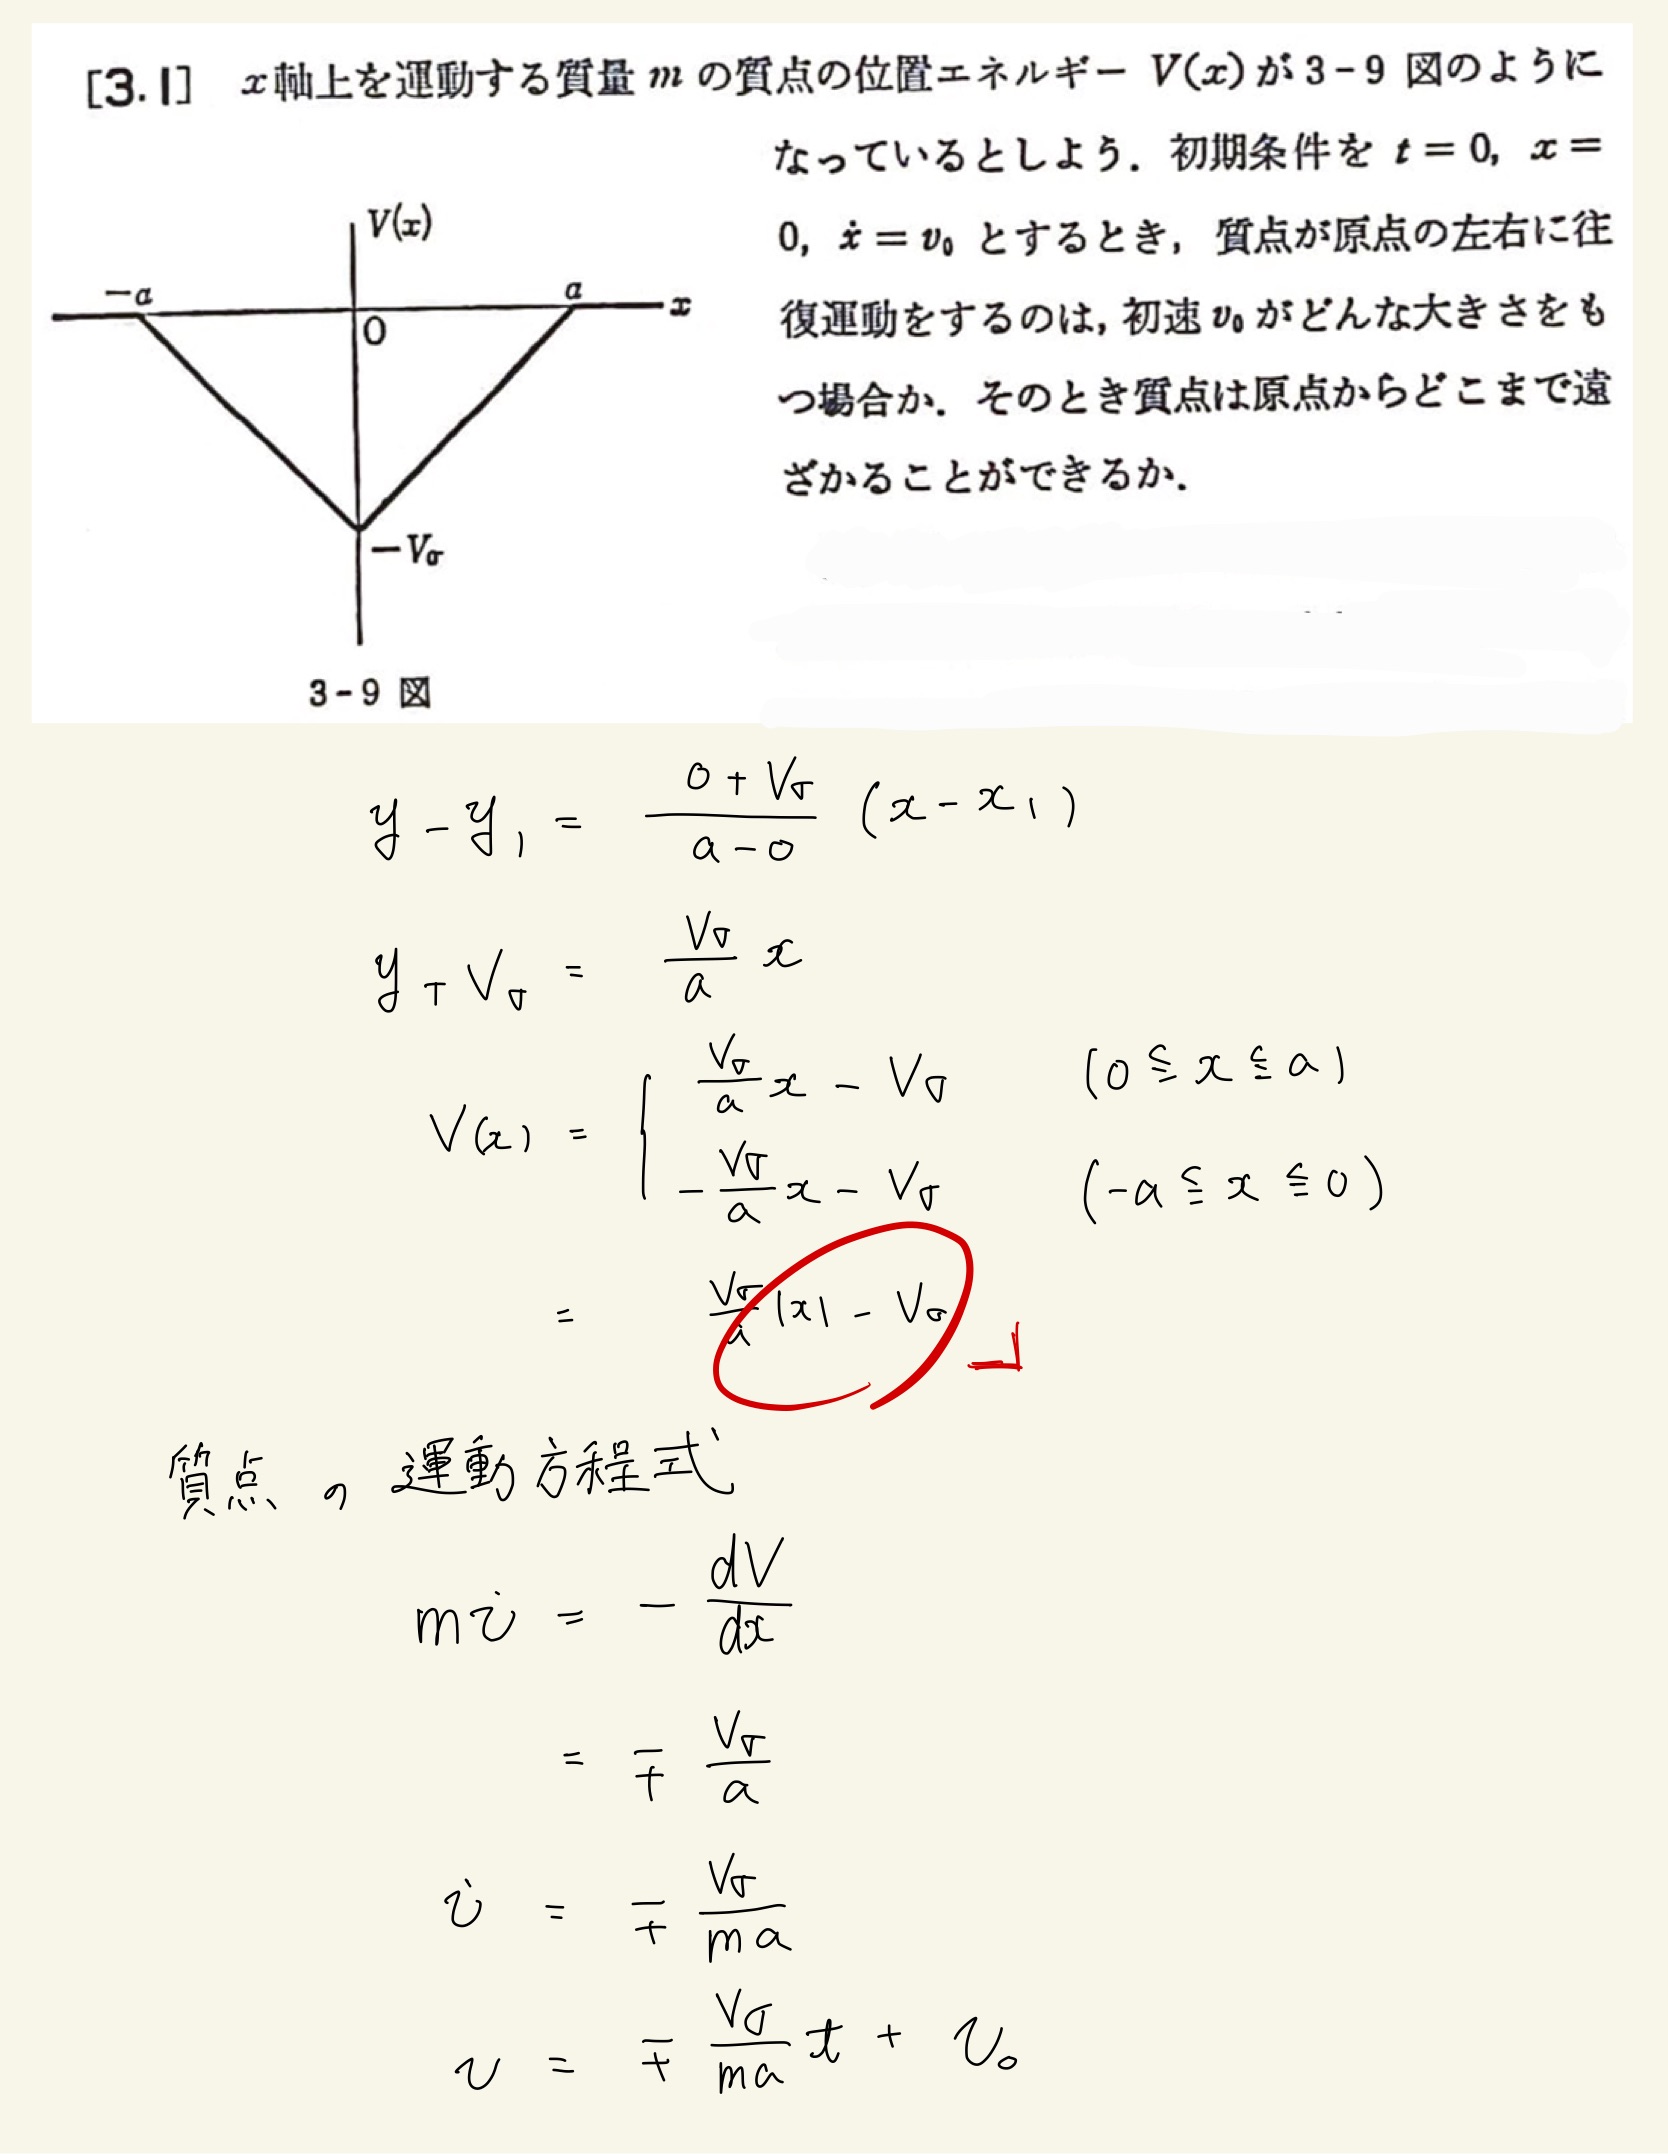 [3.1] x軸上を運動する質量 m の質点の位置エネルギー V(x) が 3-9 図のように
なっているとしよう. 初期条件を t = 0, x =
0, ẋ = v₀ とするとき, 質点が原点の左右に往
復運動をするのは, 初速 v₀ がどんな大きさをも
つ場合か. そのとき質点は原点からどこまで遠
ざかることができるか.
V(x)
-a
a
x
O
-Vσ
3-9 図
y - y₁ = (0 + Vσ)/(a - 0) (x - x₁)
y + Vσ = Vσ/a x
V(x) = { Vσ/a x - Vσ (0 ≦ x ≦ a)
-Vσ/a x - Vσ (-a ≦ x ≦ 0)
= Vσ/a |x| - Vσ
質点の運動方程式
mv̇ = - dV/dx
= ∓ Vσ/a
v̇ = ∓ Vσ/ma
v = ∓ Vσ/ma t + v₀